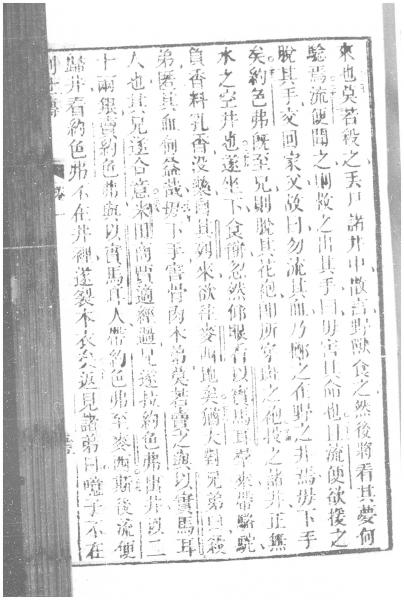 來也莫若殺之丟尸諸井中散言野獸食之然後將看其夢何
驗焉流便聞之則救之出其手曰毋害其命也且流便欲援之
脫其手交回家父故曰勿流其血乃擲之在野之井焉毋下手
矣約色弗旣至兄則脫其花袍卽所穿諸之袍投之諸井正無
水之空井也遂坐下食餅忽然仰眼看以實馬耳羣來帶駱駝
負香料乳香沒藥 其列來欲往麥西地矣猶大對兄弟曰殺
弟匿其血何益哉毋下手害骨肉本弟莫若賣之與以實馬耳
人也其兄遂合意米田商賈適經過兄遂拉約色弗出井以二
十兩銀賣約色弗與以實馬耳人帶約色弗至麥西斯後流便
歸井看約色弗不在井裡遂裂本衣矣返見諸弟曰噫子不在